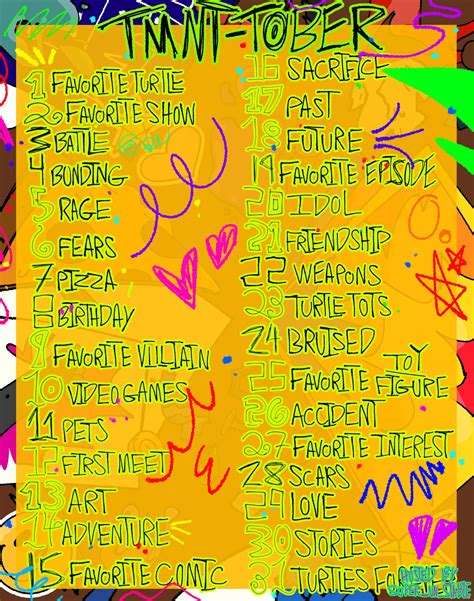 TMNT-TOBER
1 FAVORITE TURTLE
2 FAVORITE SHOW
3 BATTLE
4 BUNDING
5 RAGE
6 FEARS
7 PIZZA
8 BIRTHDAY
9 FAVORITE VILLIAIN
10 VIDEO GAMES
11 PETS
12 FIRST MEET
13 ART
14 ADVENTURE
15 FAVORITE COMIC
16 SACRIFICE
17 PAST
18 FUTURE
19 FAVORITE EPISODE
20 IDOL
21 FRIENDSHIP
22 WEAPONS
23 TURTLE TOTS
24 BRUISED
25 FAVORITE TOY
FIGURE
26 ACCIDENT
27 FAVORITE INTEREST
28 SCARS
29 LOVE
30 STORIES
31 TURTLES
BY